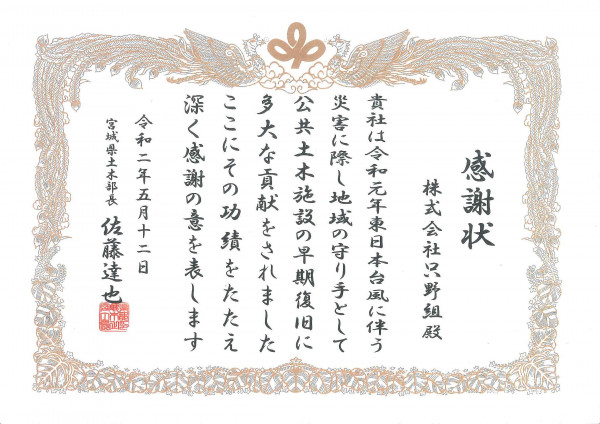 感謝状
株式会社只野組殿
貴社は令和元年東日本台風に伴う
災害に際し地域の守り手として
公共土木施設の早期復旧に
多大な貢献をされました
ここにその功績をたたえ
深く感謝の意を表します
令和二年五月十二日
宮城県土木部長 佐藤達也